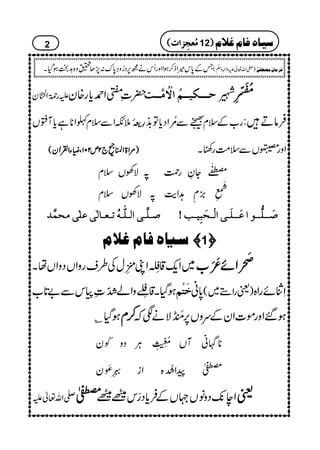 سیاہ فام غلام (12 مُعجزات) 2
فرمانِ مصطفٰے (صلی اللہ تعالٰی علیہ واٰلہٖ وسلم) جس کے پاس میرا ذکر ہوا اور اُس نے مجھ پر دُرُودِ پاک نہ پڑھا تحقیق وہ بد بخت ہوگیا۔
مُفَسِّرِ شہیر حکیمُ الْاُمَّت حضرتِ مفتی احمد یار خان علیہ رحمۃ الحنّان
فرماتے ہیں: رب کے سلام بھیجنے سے مُراد یا تو بذریعہ ملائکہ سلام کہلوانا ہے یا آفتوں
اور مصیبتوں سے سلامت رکھنا۔ (مراۃ المناجیح ج۲ ص۱۰۲، ضیاء القران)
مصطفٰے جانِ رحمت پہ لاکھوں سلام
شمعِ بزمِ ہدایت پہ لاکھوں سلام
صَلُّوا عَلَی الْحَبِیب! صلَّی اللّٰہُ تعالٰی علٰی محمَّد
﴿1﴾ سیاہ فام غلام
صَحرائے عَرَب میں ایک قافِلہ اپنی منزِل کی طرف رواں دواں تھا۔
اَثنائے راہ (یعنی راستے میں) پانی خَتم ہوگیا۔ قافِلے والے شدّتِ پیاس سے بے تاب
ہوگئے اور موت ان کے سروں پر مَنڈلانے لگی کہ کرم ہوگیا ؎
ناگہانی آں مُغِیثِ ہر دو کَون
مصطفٰے پیدا شُدہ از بہرِ عَون
یعنی اچانک دونوں جہاں کے فریاد رَس میٹھے میٹھے مصطفٰے صلی اللہ تعالٰی علیہ